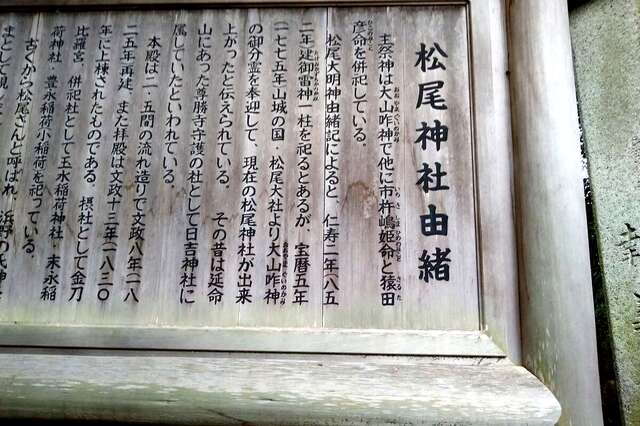 松尾神社由緒
主祭神は大山咋神で他に市杵嶋姫命と猿田
彦命を併祀している。
松尾大明神由緒記によると、仁寿二年(八五
二年建御雷神一柱を祀るとあるが、宝暦五年
(一七七五年山城の国・松尾大社より大山咋神
の御分霊を奉迎して、現在の松尾神社が出来
上がったと伝えられている。その昔は延命
山にあった尊勝寺守護の社として日吉神社に
属していたといわれている。
本殿は二・五間の流れ造りで文政八年(一八
二五年再建、また拝殿は文政十三年(一八三〇
年に上棟されたものである。摂社として金刀
比羅宮、併祀社として玉水稲荷神社・末永稲
荷神社、豊水稲荷小稲荷を祀っている。
古くから松尾さんと呼ばれ、浜野の氏神
まとして親